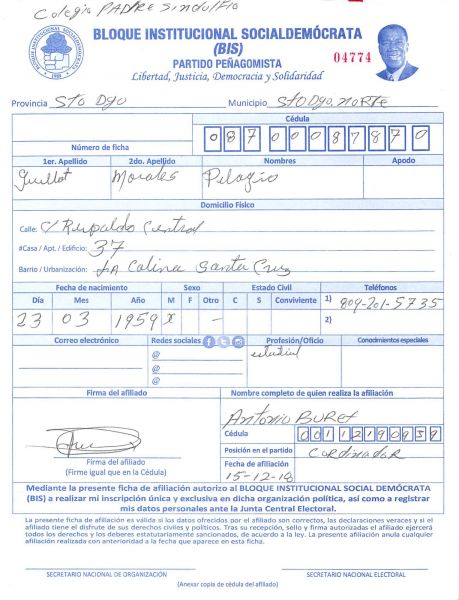 Colegio PADRE Sindulfio
BLOQUE INSTITUCIONAL SOCIALDEMÓCRATA
BLOQUE INSTITUCIONAL SOCIALDEMÓCRATA
(BIS)
PARTIDO PEÑAGOMISTA
04774
Libertad, Justicia, Democracia y Solidaridad
Provincia Sto Dgo Municipio STO Dgo. NORTE
Cédula
08700087870
Número de ficha
1er. Apellido 2do. Apellido Nombres Apodo
Guillot Morales Pelagio
Domicilio Físico
Calle: C/ Respaldo Central
#Casa / Apt. / Edificio: 37
Barrio / Urbanización: LA Colina Santa Cruz
Fecha de nacimiento Sexo Estado Civil Teléfonos
Día Mes Año M F Otro C S Conviviente 1) 809-201-5735
23 03 1959 x - 2)
Correo electrónico Redes sociales Profesión/Oficio Conocimientos especiales
@
@
@
Firma del afiliado Nombre completo de quien realiza la afiliación
Antonio BURET
Cédula
Firma del afiliado
(Firme igual que en la Cédula)
Posición en el partido CORDINADOR
Fecha de afiliación
15-12-18
Mediante la presente ficha de afiliación autorizo al BLOQUE INSTITUCIONAL SOCIAL DEMÓCRATA
(BIS) a realizar mi inscripción única y exclusiva en dicha organización política, así como a registrar
mis datos personales ante la Junta Central Electoral.
La presente ficha de afiliación es válida si los datos ofrecidos por el afiliado son correctos, las declaraciones veraces y si el
afiliado tiene el disfrute de sus derechos civiles y políticos. Tras su recepción, sello y firma autorizadas el afiliado ejercerá
todos los derechos y los deberes estatutariamente sancionados, de acuerdo a la ley. La presente afiliación anula cualquier
afiliación realizada con anterioridad a la fecha que aparece en esta ficha.
SECRETARIO NACIONAL DE ORGANIZACIÓN SECRETARIO NACIONAL ELECTORAL
(Anexar copia de cédula del afiliado)